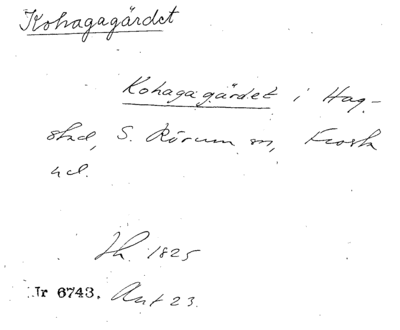 Kohagagärdet
Kohagagärdet i Hag-
stad, S. Rörum sn, Frosta
hd.
1825
Nr 6743. Ant 23.